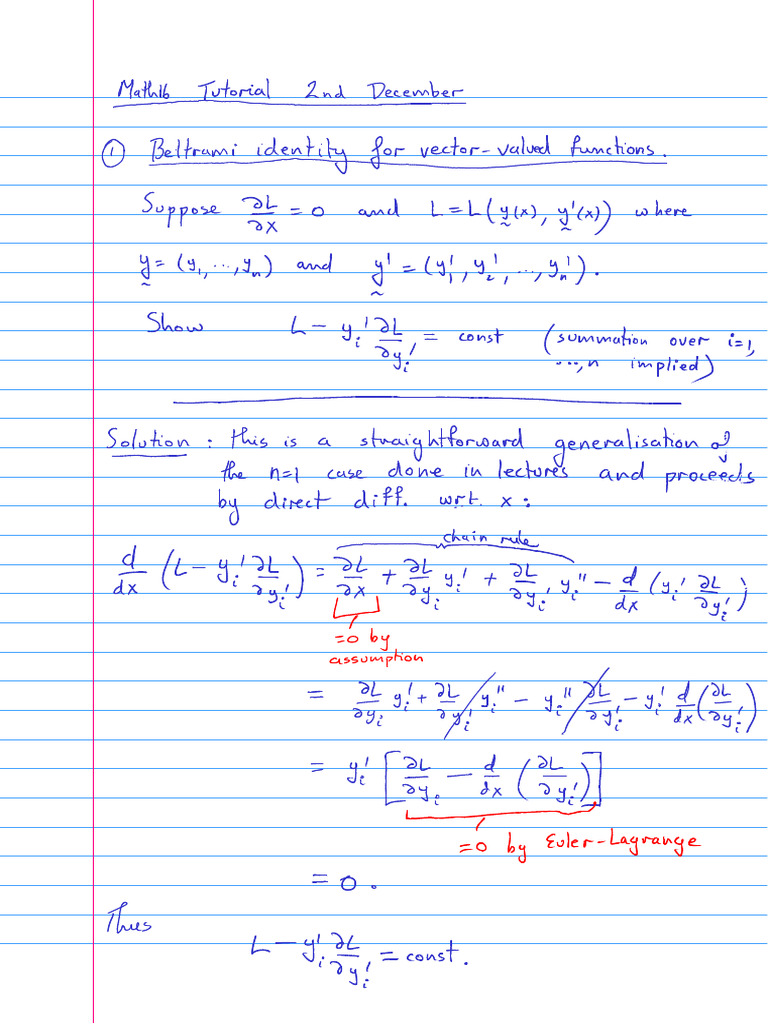 Math16 Tutorial 2nd December
① Beltrami identity for vector-valued functions.
Suppose ∂L/∂x = 0 and L = L(y(x), y'(x)) where
y = (y₁, ..., yₙ) and y' = (y₁', y₂', ..., yₙ').
Show L − yᵢ' ∂L/∂yᵢ' = const (summation over i=1,
..., n implied)
Solution : this is a straightforward generalisation of
the n=1 case done in lectures and proceeds
by direct diff. wrt. x :
chain rule
d/dx (L − yᵢ' ∂L/∂yᵢ') = ∂L/∂x + ∂L/∂yᵢ yᵢ' + ∂L/∂yᵢ' yᵢ'' − d/dx (yᵢ' ∂L/∂yᵢ')
=0 by
assumption
= ∂L/∂yᵢ yᵢ' + ∂L/∂yᵢ' yᵢ'' − yᵢ'' ∂L/∂yᵢ' − yᵢ' d/dx (∂L/∂yᵢ')
= yᵢ' [∂L/∂yᵢ − d/dx (∂L/∂yᵢ')]
=0 by Euler-Lagrange
= 0.
Thus
L − yᵢ' ∂L/∂yᵢ' = const.